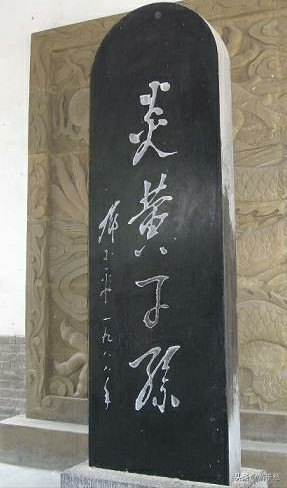 炎黄子孫
邓小平 一九八八年
头条